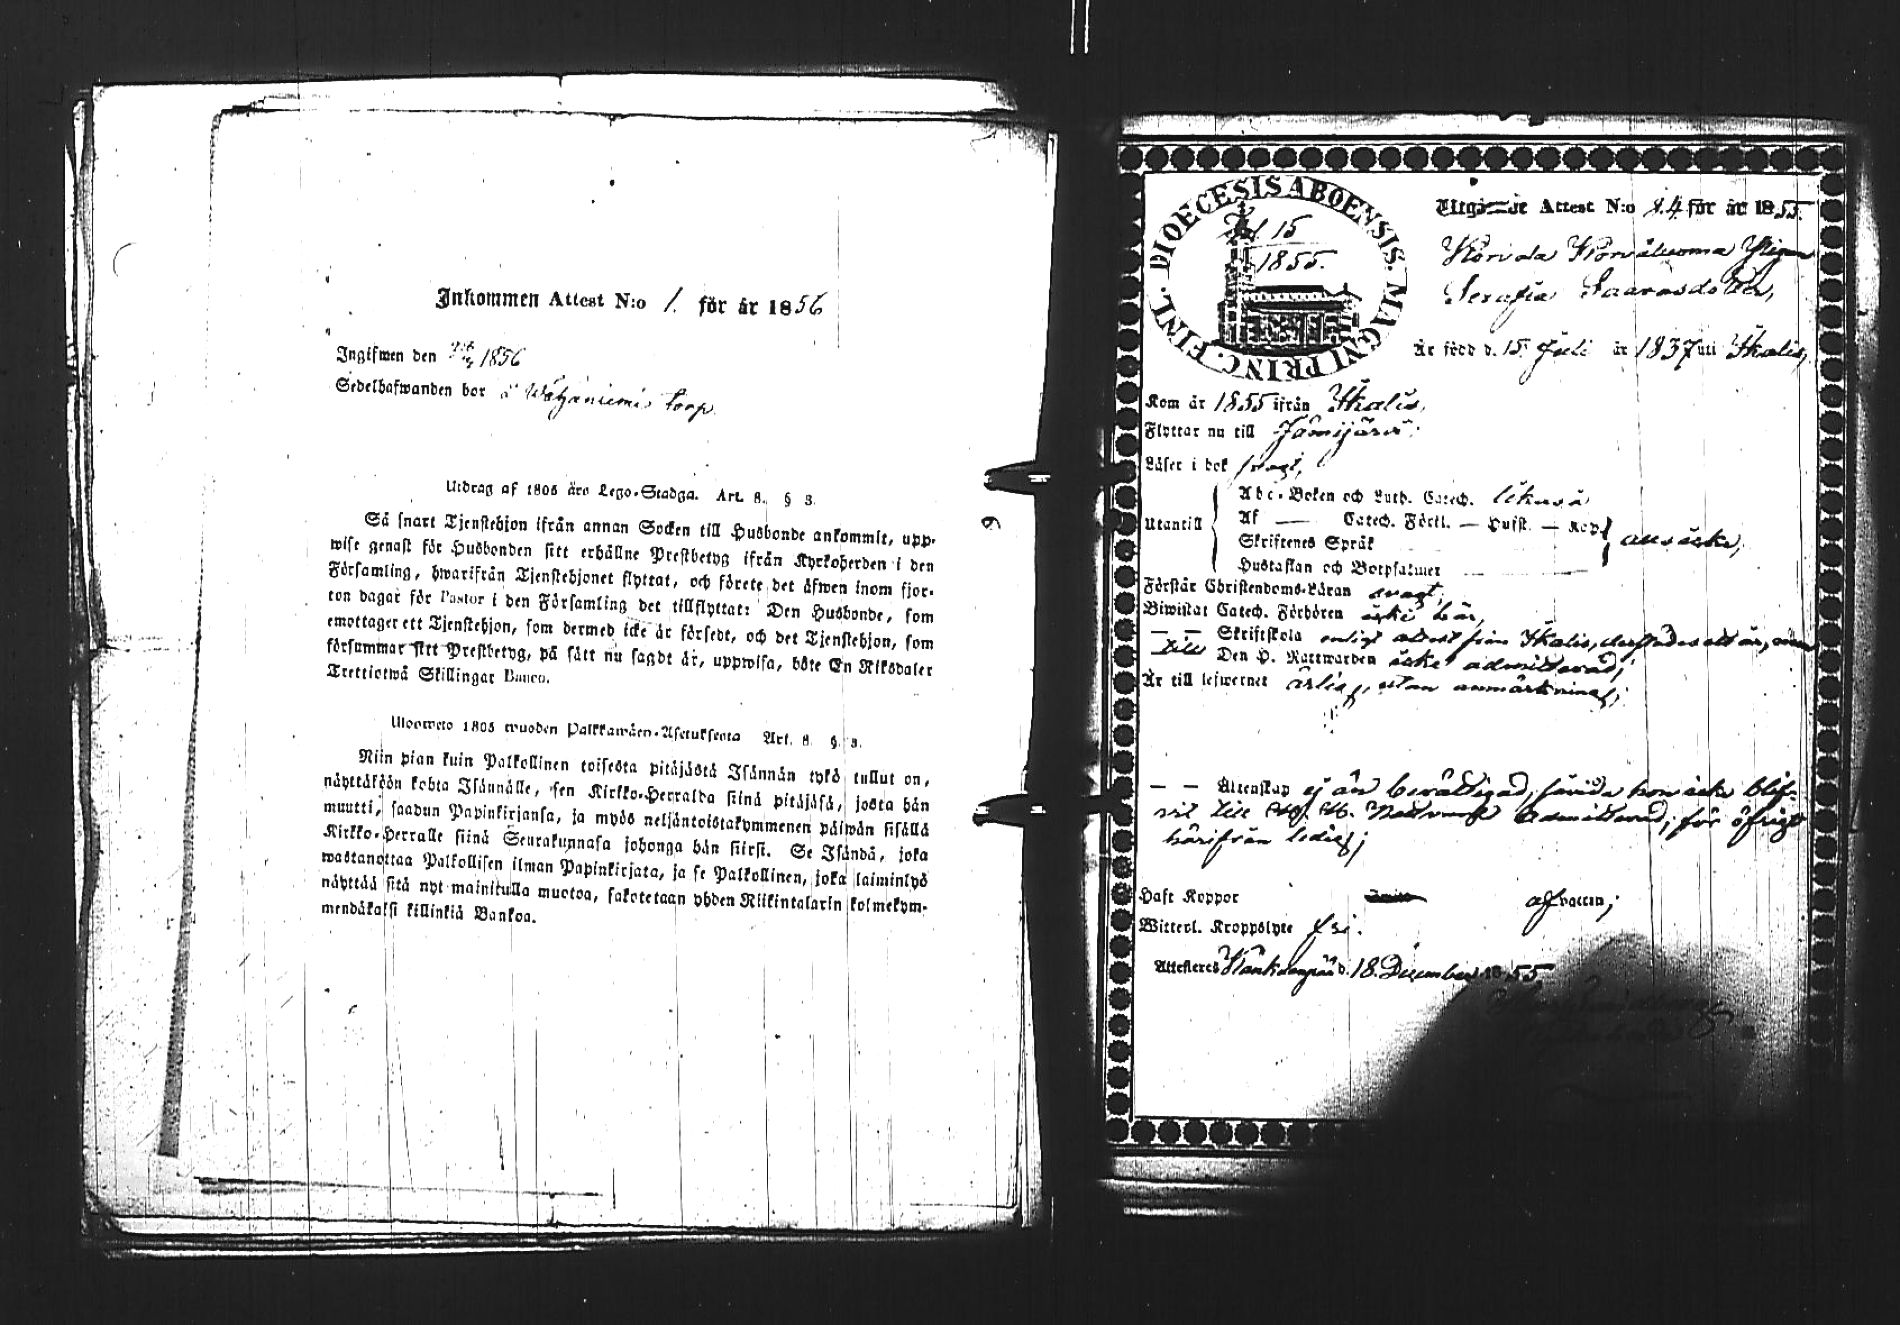 Inkommen Attest N:o 1. för år 1856
Ingifwen den 1856
Sedelhafwanden bor å torp.
Utdrag af 1805 års Lego-Stadga. Art. 8. § 3.
Så snart Tjenstehjon ifrån annan Socken till Husbonde ankommit, upp-
wise genast för Husbonden sitt erhållne Prestbetyg ifrån Kyrkoherden i den
Församling, hwarifrån Tjenstehjonet flyttat, och förete det äfwen inom fjor-
ton dagar för Pastor i den Församling det tillflyttat: Den Husbonde, som
emottager ett Tjenstehjon, som dermed icke är försedt, och det Tjenstehjon, som
försummar sitt Prestbetyg, på sätt nu sagdt är, uppwisa, böte En Riksdaler
Trettiotwå Skillingar Banco.
Ulosweto 1805 wuoden Palkkawäen-Asetuksesta Art. 8. §. 3.
Niin pian kuin Palkollinen toisesta pitäjästä Isännän tykö tullut on,
näyttäköön kohta Isännälle, sen Kirkko-Herralda siinä pitäjäsä, josta hän
muutti, saadun Papinkirjansa, ja myös neljäntoistakymmenen päiwän sisällä
Kirkko-Herralle siinä Seurakunnasa johonga hän siirsi. Se Isändä, joka
wastanottaa Palkollisen ilman Papinkirjata, ja se Palkollinen, joka laiminlyö
näyttää sitä nyt mainitulla muotoa, sakotetaan yhden Riikintalarin kolmekym-
mendäkaksi killinkiä Bankoa.
9
DIOECESIS ABOENSIS. MAGNI PRINC. FINL.
15
1855.
Utgående Attest N:o 14 för år 1855.
Pigan
Serafia
Är född d. 15 Juli år 1837 uti Ikalis,
Kom år 1855 ifrån Ikalis,
Flyttar nu till Jämijärvi.
Läser i bok svagt,
Utantill
Abc-Boken och Luth. Catech. likaså
Af — Catech. Förkl. — Hufst. — Kop
Skriftenes Språk
Hustaflan och Botpsalmer
Förstår Christendoms-Läran svagt,
Biwistat Catech. Förhören icke här,
— — Skriftskola enligt attest från Ikalis, derstädes ett år, men
till Den H. Nattwarden icke admitterad;
Är till lefwernet ärlig, utan anmärkning;
— — Äktenskap ej än berättigad, savida hon icke blif-
vit till H. H. Nattward admitterad, för öfrigt
härifrån ledig;
Haft Koppor af vaccin;
Witterl. Kroppslyte fri.
Attesteras Kankaanpää d. 18 December 1855,